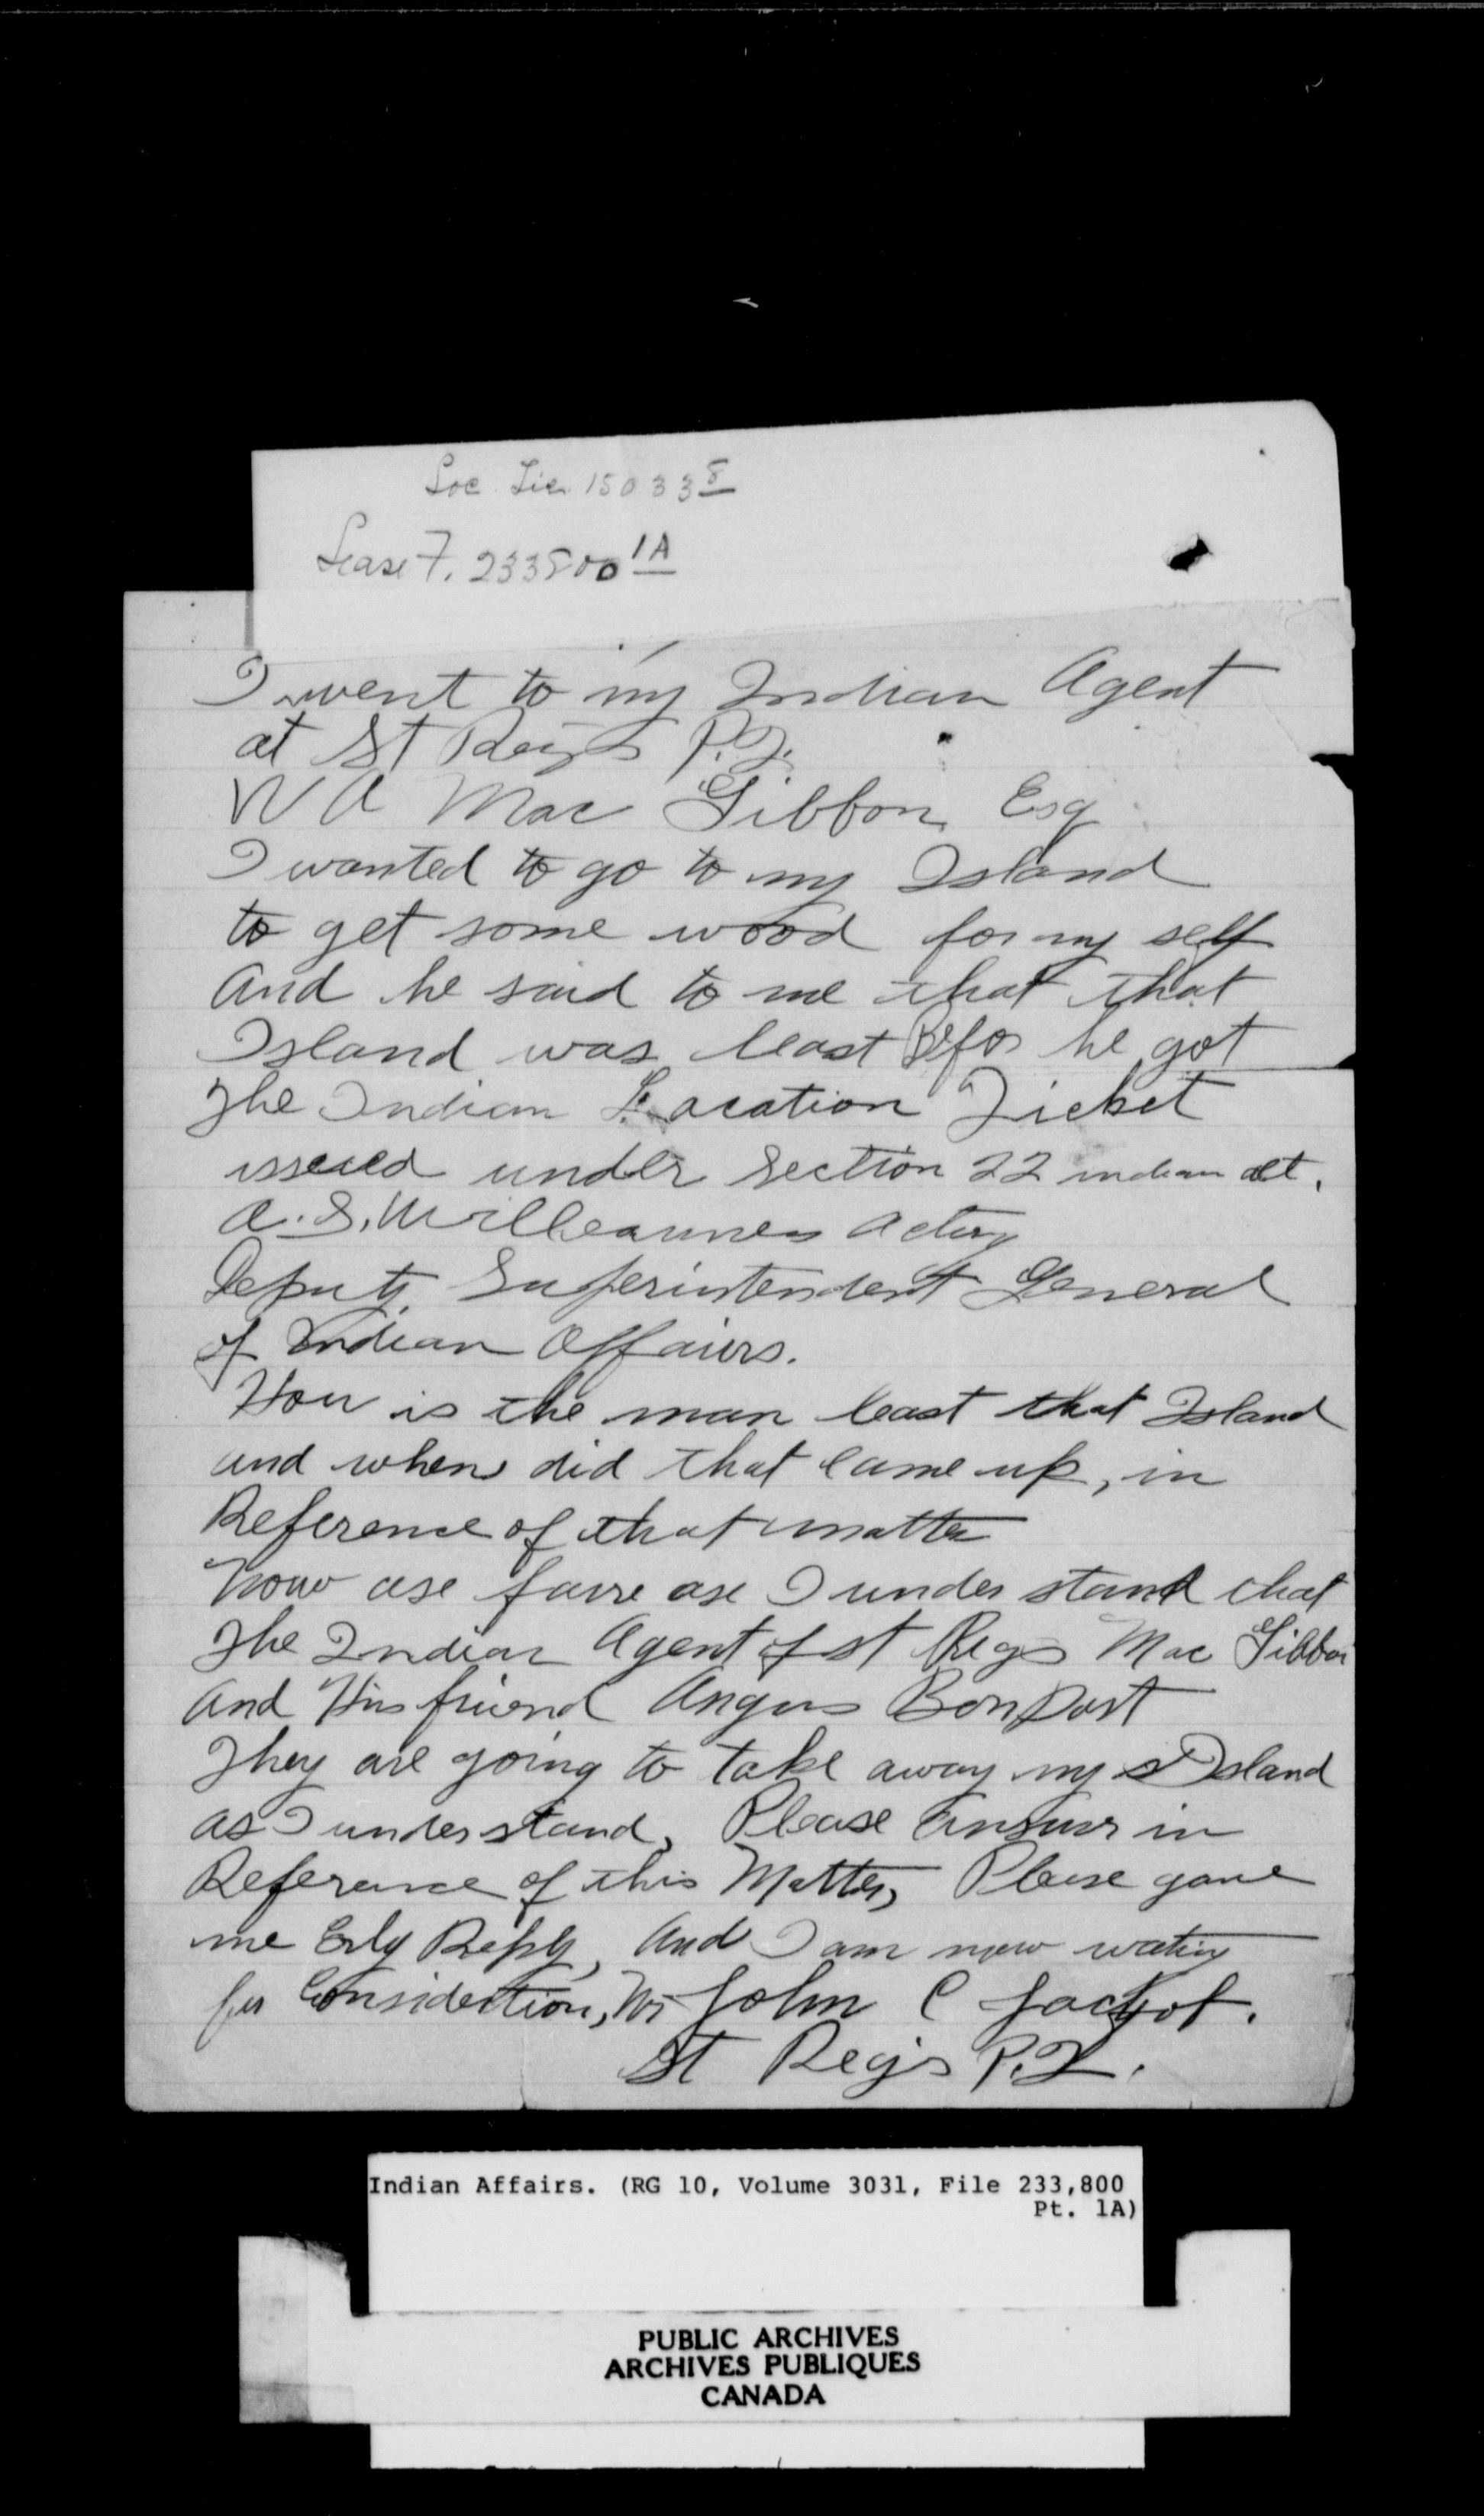 Loc. Tic. 15033 8
Lease F. 233800 1A
I went to my Indian Agent
at St Regis P.Q.
W A Mac Gibbon Esq
I wanted to go to my Island
to get some wood for my self
And he said to me that that
Island was least Befor he got
The Indian Location Ticket
issued under Section 22 indian act.
A. S. Williaumes Acting
Deputy Superintendent General
of Indian Affairs.
How is the man least that Island
and when did that came up, in
Reference of that matter
Now ase farre ase I under stand that
The Indian Agent of St Regis Mac Gibbon
And His friend Angus Bonpart
They are going to take away my Island
as I understand, Please Answer in
Reference of this Matter, Please gave
me Erly Reply, And I am now wating
for Considertion, Mr John C
St Regis P.Q.
Indian Affairs. (RG 10, Volume 3031, File 233,800
Pt. 1A)
PUBLIC ARCHIVES
ARCHIVES PUBLIQUES
CANADA